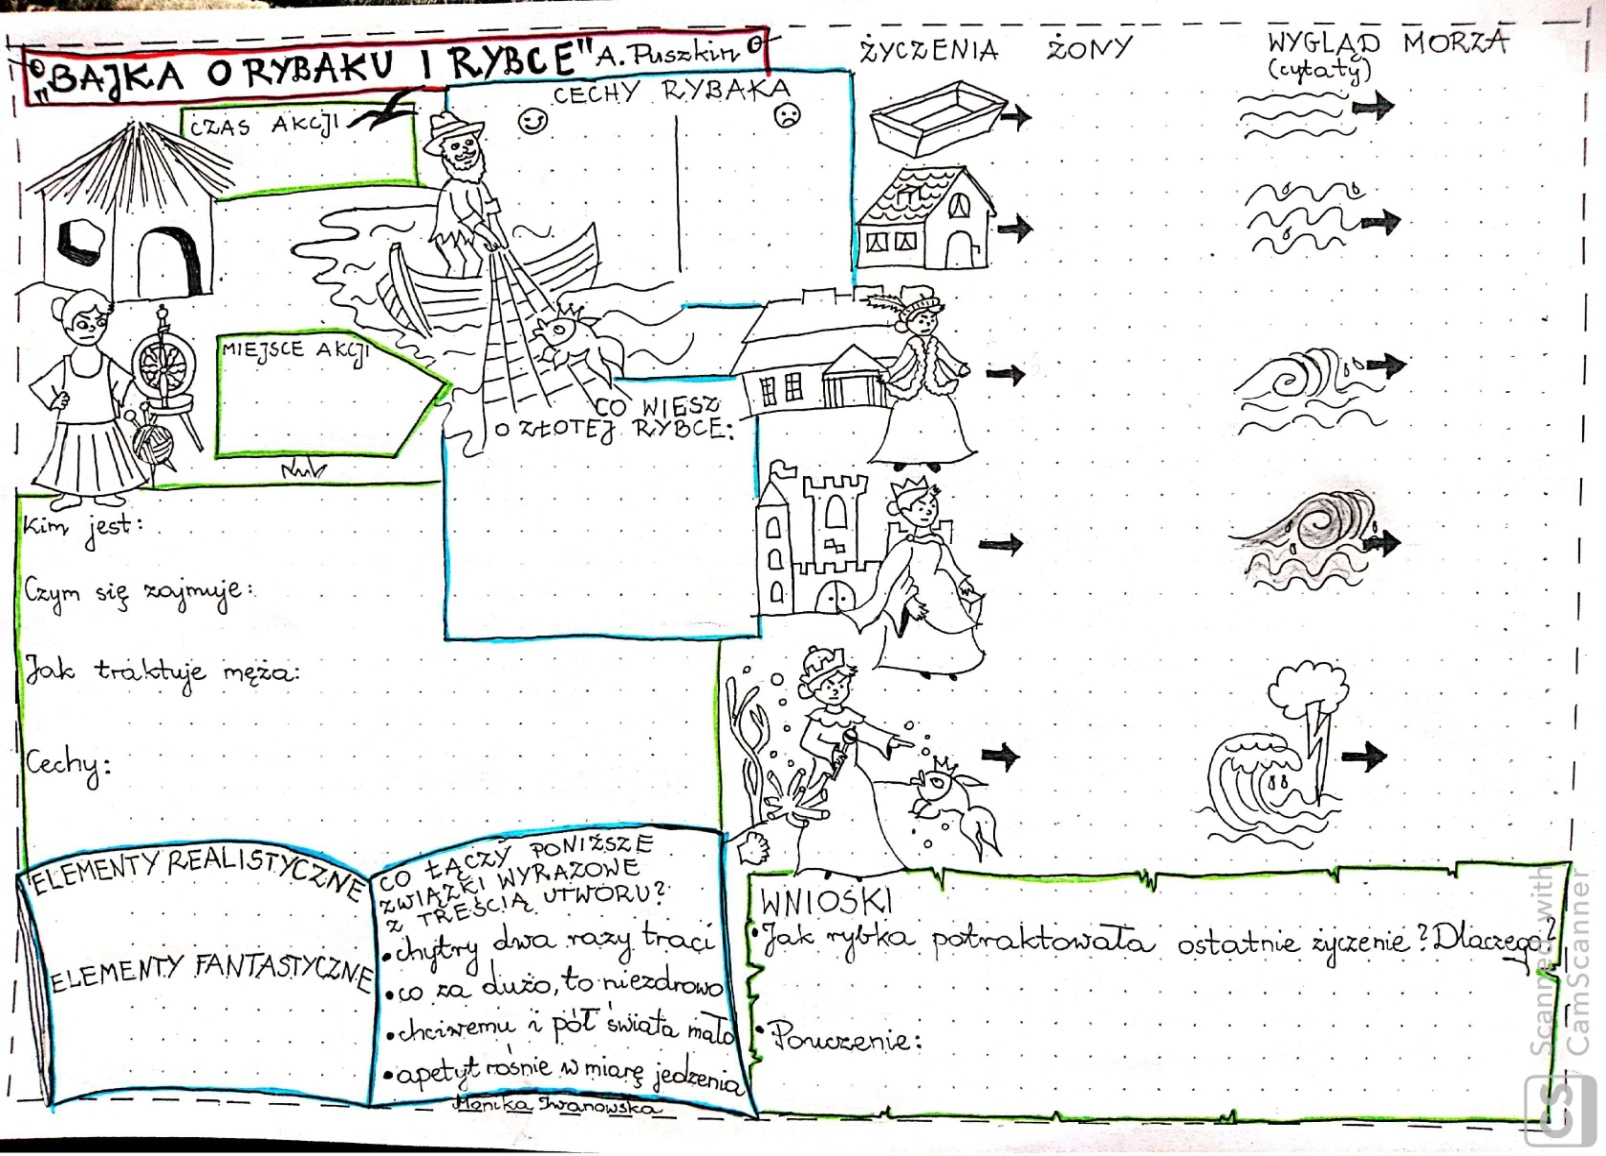 "BAJKA O RYBAKU I RYBCE" A. Puszkin
CZAS AKCJI
CECHY RYBAKA
MIEJSCE AKCJI
CO WIESZ
O ZŁOTEJ RYBCE:
Kim jest:
Czym się zajmuje:
Jak traktuje męża:
Cechy:
ELEMENTY REALISTYCZNE
ELEMENTY FANTASTYCZNE
CO ŁĄCZY PONIŻSZE
ZWIĄZKI WYRAZOWE
Z TREŚCIĄ UTWORU?
• chytry dwa razy traci
• co za dużo, to niezdrowo
• chciwemu i pół świata mało
• apetyt rośnie w miarę jedzenia
Monika Iwanowska
ŻYCZENIA ŻONY
WYGLĄD MORZA
(cytaty)
WNIOSKI
• Jak rybka potraktowała ostatnie życzenie? Dlaczego?
• Pouczenie:
Scanned with
CamScanner
CS